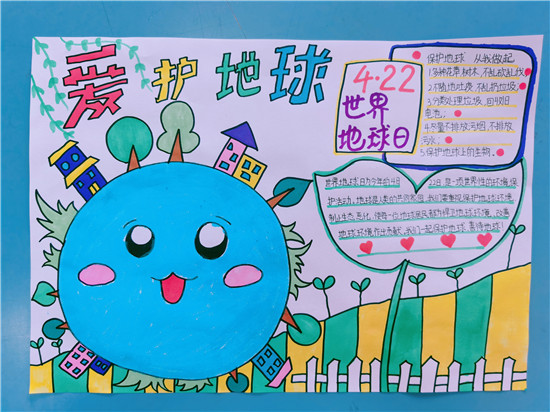 爱护地球
4·22
世界
地球日
保护地球 从我做起
1.多种花草树木,不乱砍乱伐
2.不随地吐痰,不乱扔垃圾
3.分类处理垃圾,回收旧
电池;
4.尽量不排放污烟,不排放
污水;
5.保护地球上的生物。
世界地球日为每年的4月22日,是一项世界性的环境保
护活动。地球是人类的共同家园,我们要重视保护地球环境,
制止生态恶化,使每一位地球居民都珍惜卫地球环境,改善
地球环境作出贡献,我们一起保护地球,善待地球!